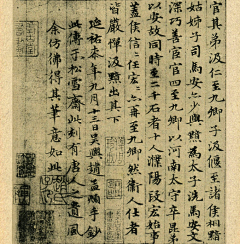 官其弟汲仁至九卿子汲偃至諸侯相黯
姑姊子司馬安亦少與黯為太子洗馬安文
深巧善宦官四至九卿以河南太守卒昆弟
以安故同時至二千石者十人濮陽段宏始事
蓋侯信信任宏宏亦再至九卿然衛人仕者
皆嚴憚汲黯出其下
延祐七年九月十三日吳興趙孟頫手鈔
此傳于松雪齋此刻有唐人之遺風
余仿佛得其筆意如此